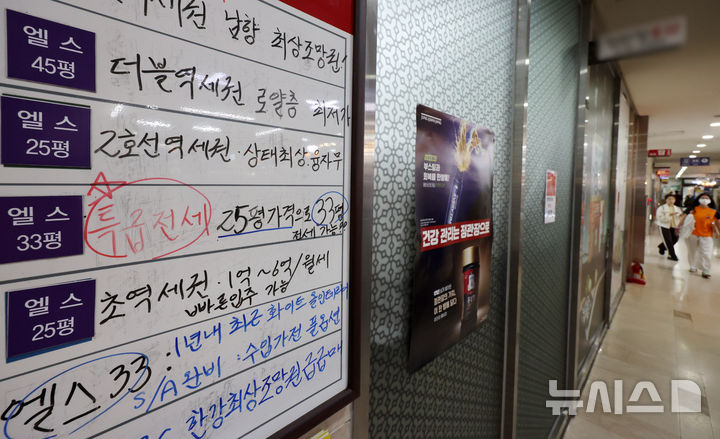 역세권 남향 최상조망권
엘스
45평
더블역세권 로얄층 최저가
엘스
25평
2호선역세권 · 상태최상 융자무
엘스
33평
특급전세
25평가격으로 33평
전세 가능
엘스
25평
초역세권 · 1억~6억/월세
빠른입주 가능
엘스 33 : 1년내 최근 화이트 올인테리어
S/A완비 : 수입가전 풀옵션
한강최상조망 급급매
부스팅과
회복을 한병에!
건강 관리는 정관장으로
뉴시스